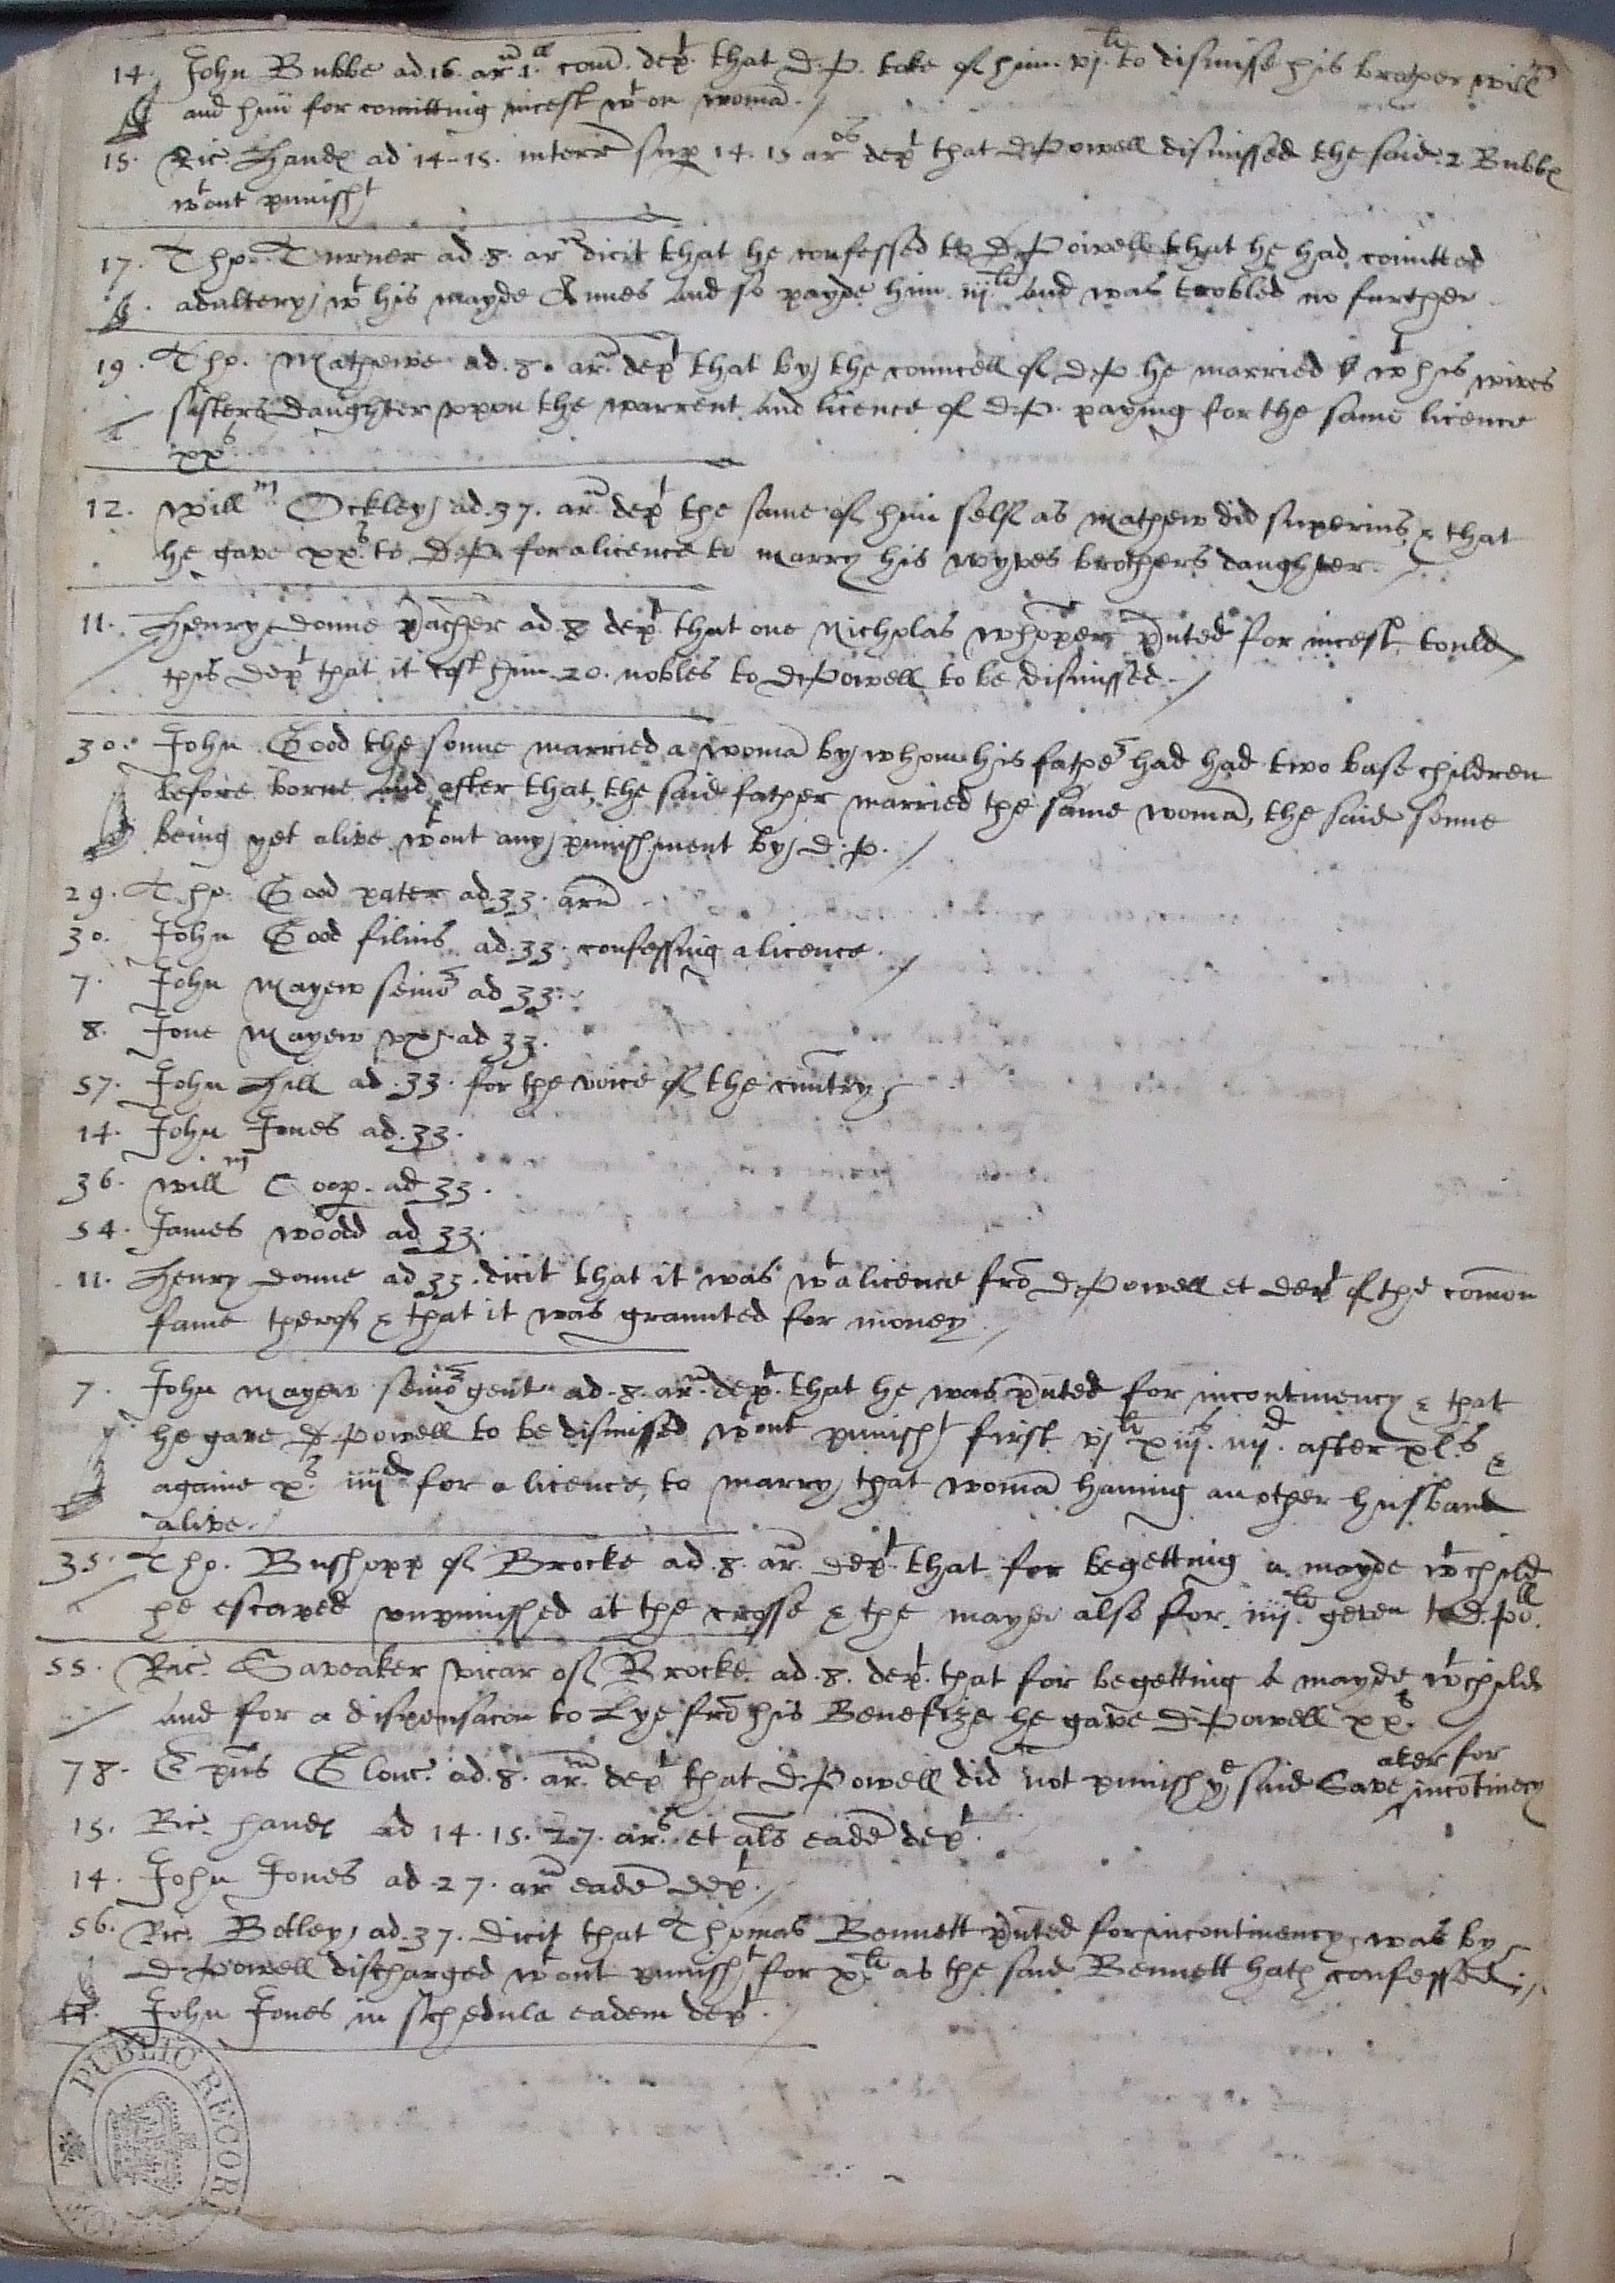 14. John Bubbe ad .16. arm 1.ae com. dept that D.P. toke of him vj.li to dismisse his brother Willm
and him for comitting incest wt on woman. /
15. Ric. Hands ad 14-15. interr sup 14. 15 aros dept that D.Powell dismissed the said 2 Bubbs
wtout punisht
17. Tho. Turner ad .8. arm dicit that he confessed to D.Powell that he had comitted
adultery wt his mayde Annes and so payde him iij.li and was trobled no further
19. Tho. Mathewe ad .8. ar. dept that by the councell of D.P. he married wt his wives
sisters daughter uppon the warrent and licence of D.P. paying for the same licence
xxs
12. Willm Ockley ad .37. ar. dept the same of him self as Mathew did superius, & that
he gave xxs. to D.P. for a licence to marry his wyves brothers daughter. /
11. Henry Donne ad 8 dept that one Nicholas pnted for incest tould
this dept that it cost him 20. nobles to D.Powell to be dismissed. /
30. John Good the sonne married a woman by whom his father had had two base children
before borne and after that, the said father married the same woman, the said sonne
being yet alive wtout any punishment by D.P. /
29. Tho. Good pater ad .33. arm
30. John Good filius ad .33. confessing a licence. /
7. John Mayew senior ad 33.
8. Jone Mayew uxr ad 33.
57. John Hill ad .33. for the voice of the cuntry
14. John Jones ad .33.
36. Willm Coop. ad 33.
54. James Woodd ad 33.
11. Henry Donne ad 33. dicit that it was wt a licence fro D.Powell et dept of the comon
fame therof & that it was graunted for money. /
7. John Mayew senior gent. ad .8. ar. dept. that he was pnted for incontinency & that
he gave D.Powell to be dismissed wtout punisht first vjli xiijs. iiijd. after xls &
againe xs. iiijd for a licence, to marry that woman having an other husband
alive. /
35. Tho. Bushopp of Brocke ad .8. ar. dept. that for begetting a mayde wt child
he escaped unpunished at the crosse & the mayde also for iiij.li geven to D.Poll.
55. Ric. Saveaker vicar of Brocke ad .8. dept. that for begetting a mayde wt child
and for a dispensacon to Lye fro his Benefize he gave D.Powell xxs.
78. Epus Glouc. ad .8. arm dept that D.Powell did not punish ye said Saveaker for incotinecy
15. Ric. Hands ad 14. 15. 27. ars. et als eade dept.
14. John Jones ad 27. arm eade dept. /
56. Ric. Botley ad .37. dicit that Thomas Bennett pnted for incontinency was by
D.Powell discharged wtout punisht for xli as the said Bennett hath confessed. /
John Jones in schedula eadem dept. /
PUBLIC RECOR